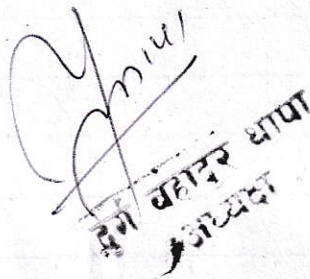 दुर्गा बहादुर थापा
अध्यक्ष